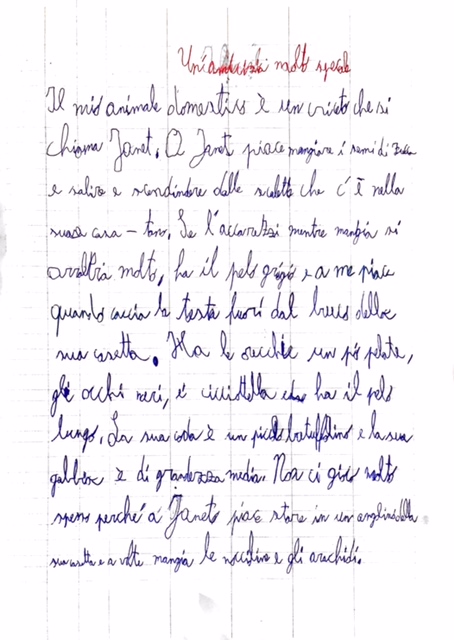 Un'animale molto speciale
Il mio animale domestico è un criceto che si
chiama Janet. A Janet piace mangiare i semi di zucca
e salire e scendindere dalle scalette che c'è nella
sua casa - tana. Se l'accarezzi mentre mangia si
arrabbia molto, ha il pelo grigio e a me piace
quando caccia la testa fuori dal buco della
sua casetta. Ha le orecchie un pò pelate,
gli occhi neri, é cicciottella ha il pelo
lungo. La sua coda è un piccolo batuffolino e la sua
gabbia è di grandezza media. Non ci gioco molto
spesso perché a Janet piace stare in un angolino della
sua casetta e a volte mangia le noccioline e gli arachidi.